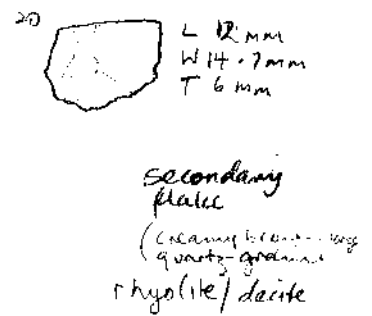 20)
L 12 mm
W 14.7 mm
T 6 mm
secondary
flake
(creamy brown
quartz-grained
rhyolite/dacite